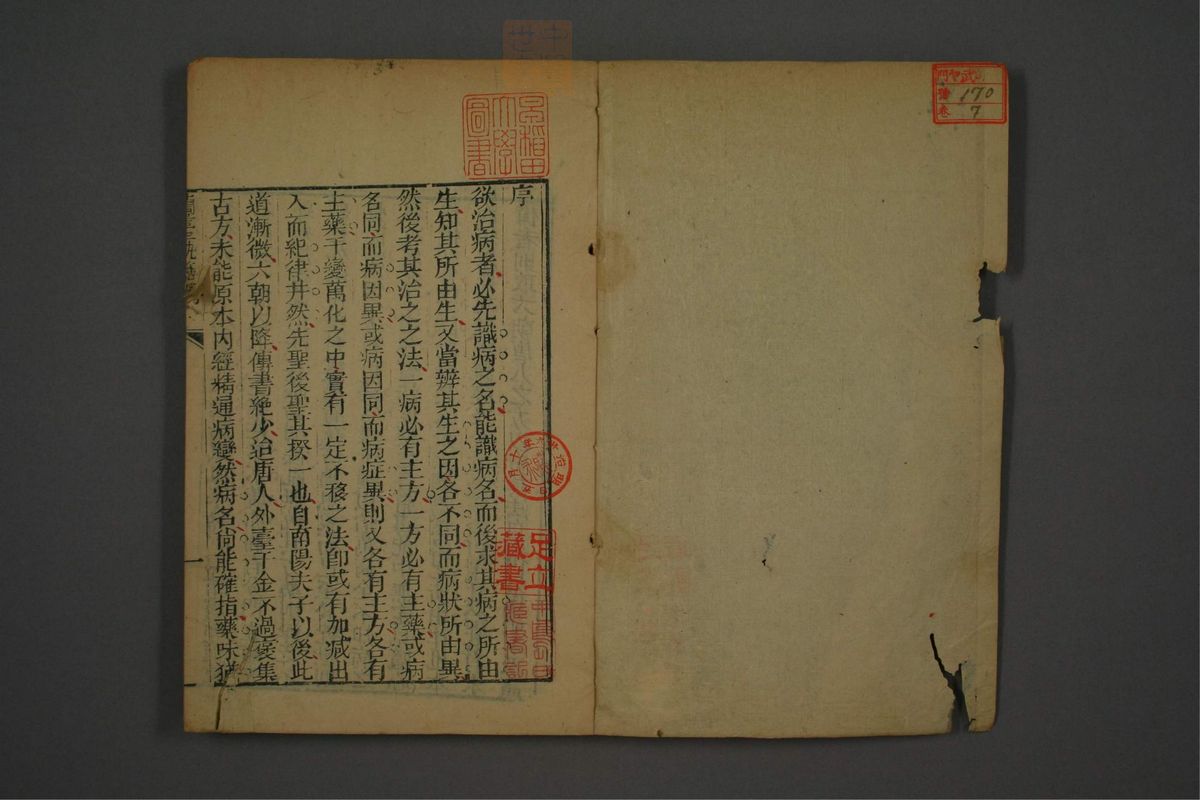 序
欲治病者必先識病之名能識病名而後求其病之所由
生知其所由生又當辨其生之因各不同而病狀所由異
然後考其治之之法一病必有主方一方必有主藥或病
名同而病因異或病因同而病症異則又各有主方各有
主藥千變萬化之中實有一定不移之法卽或有加減出
入而紀律井然先聖後聖其揆一也自南陽夫子以後此
道漸微六朝以降傳書絶少治唐人外臺千金不過裒集
古方未能原本內經精通病變然病名尙能確指藥味猶
一
早稻田大學圖書
足立藏書
武
門
號 170
卷 7